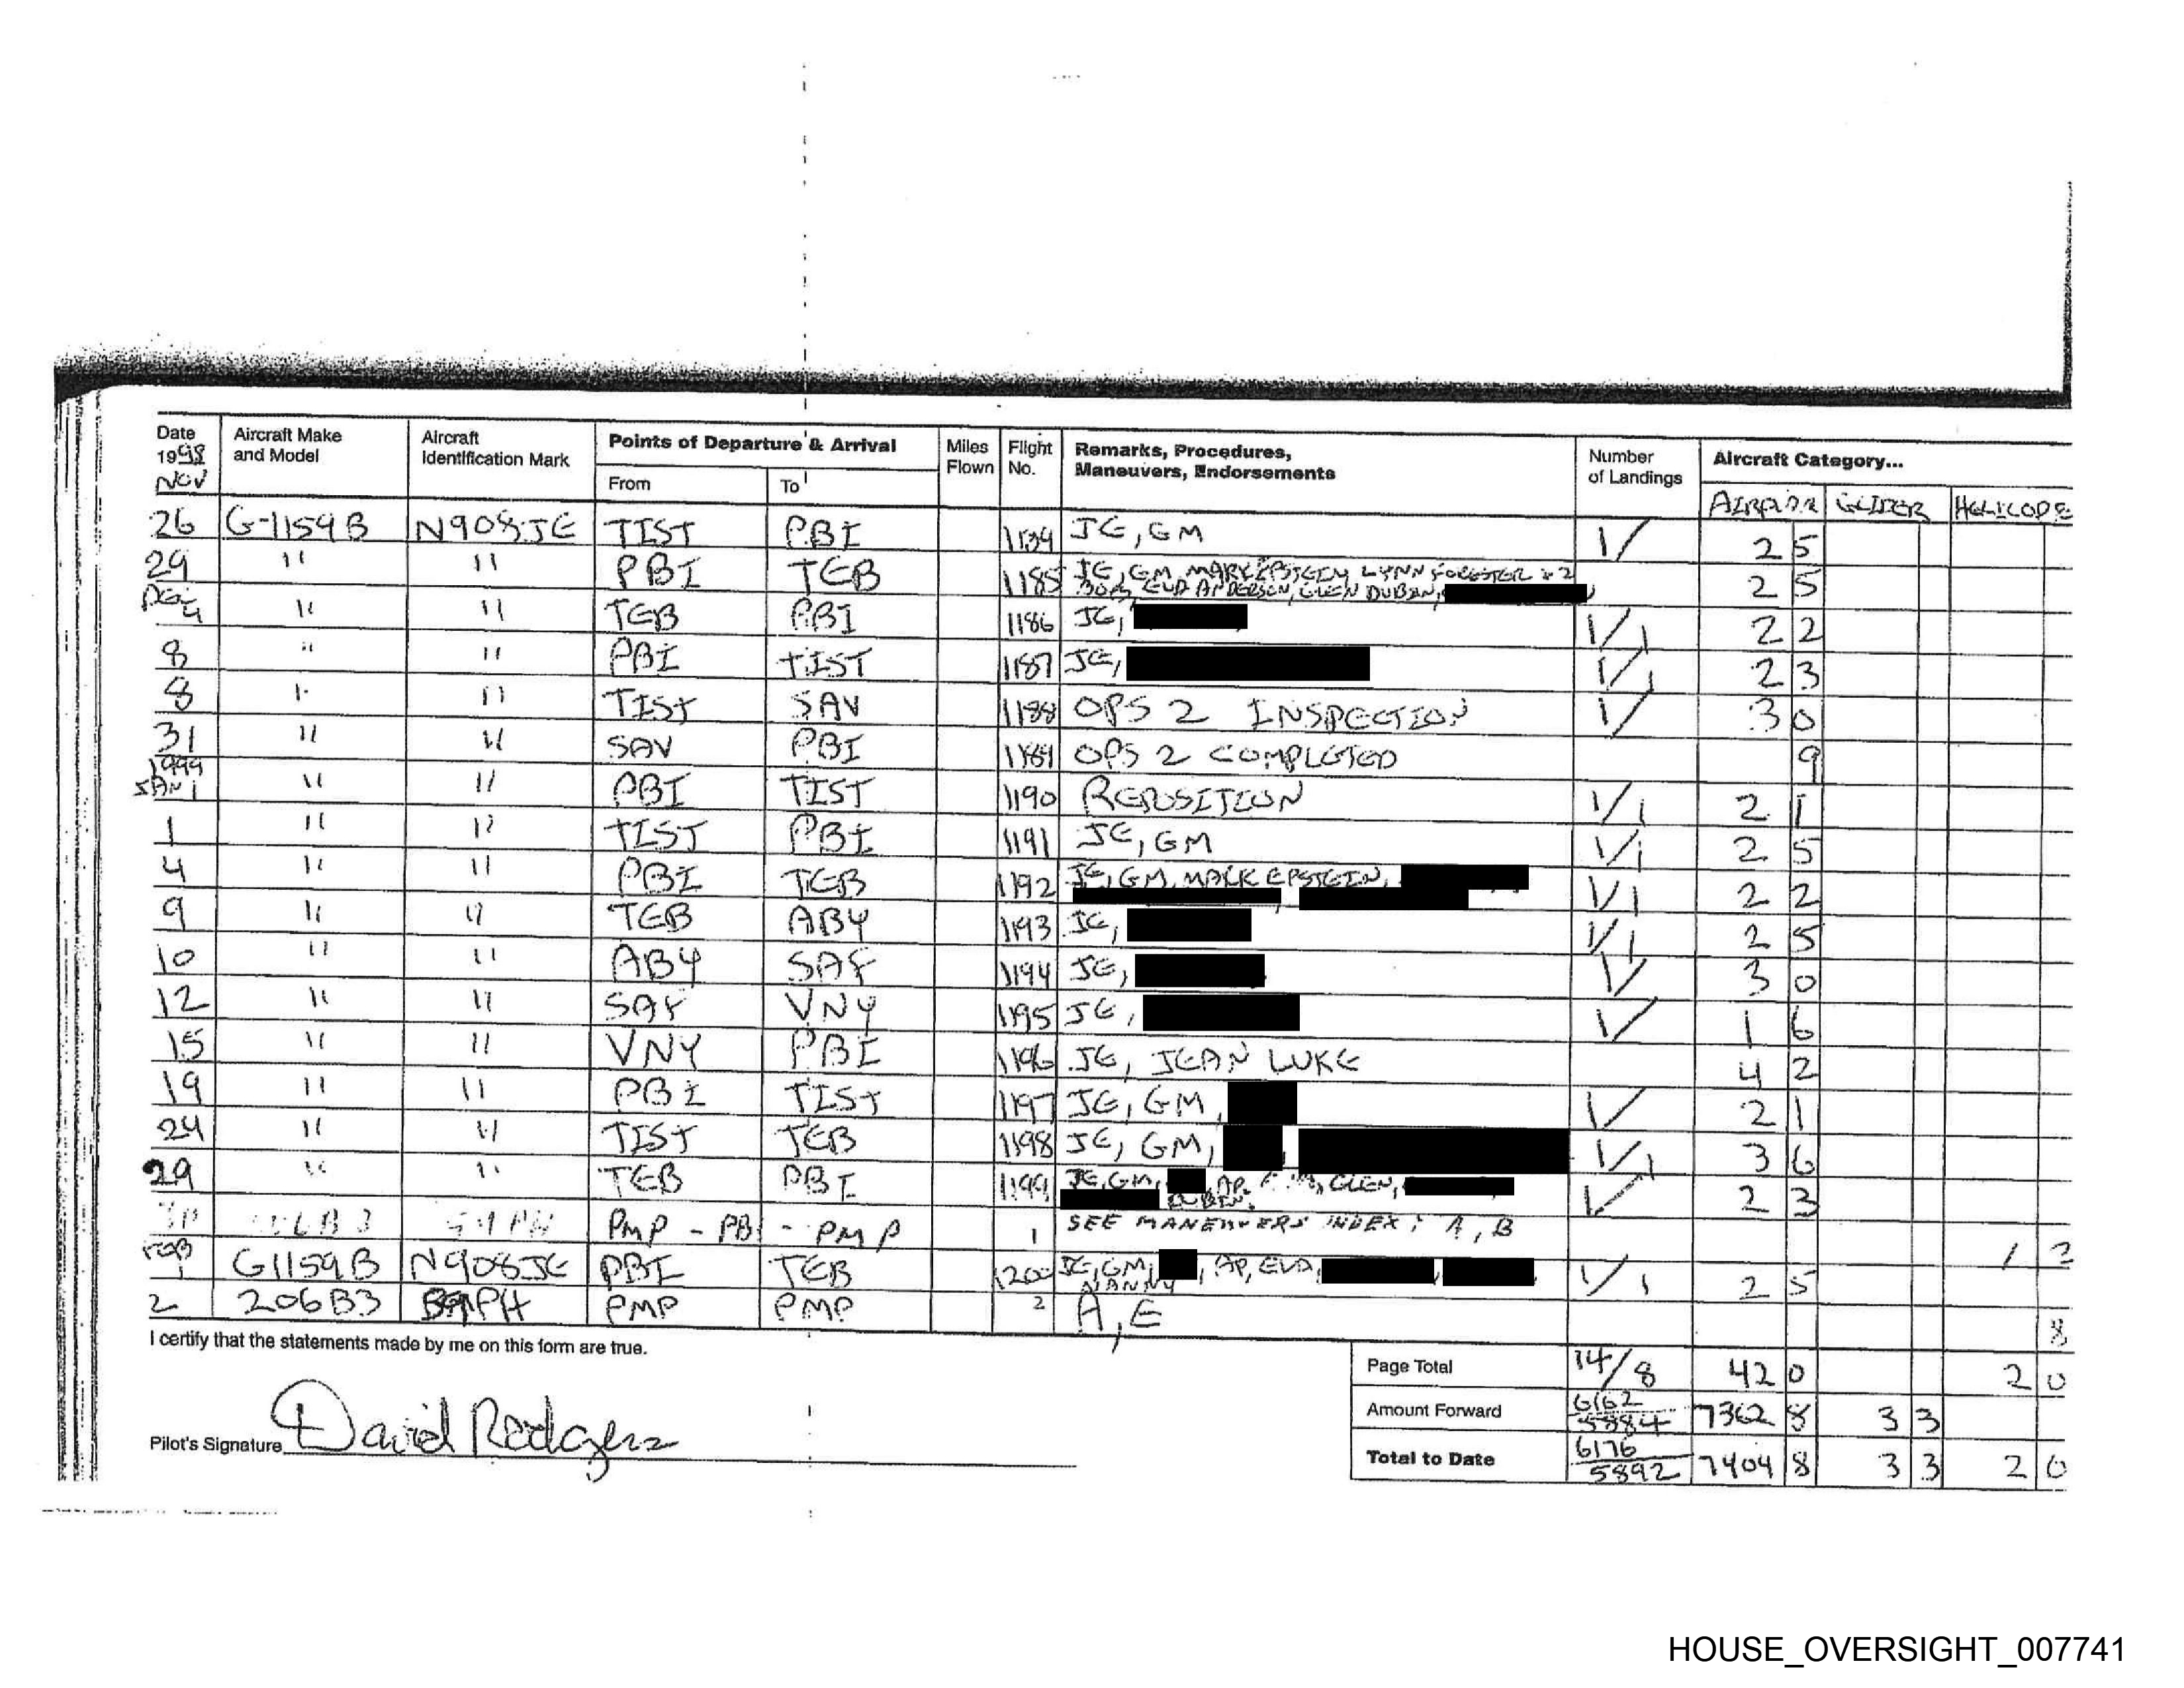 Date Aircraft Make Aircraft Points of Departure & Arrival Miles Flight Remarks, Procedures, Number Aircraft Category...
1998 and Model Identification Mark Flown No. Maneuvers, Endorsements of Landings
NOV From To AIRPLANE GLIDER HELICOPE
26 G-1159B N908JE TIST PBI JE, GM 1/ 2 5
29 " " PBI TEB 1185 JE, GM, MARK EPSTEIN, LYNN FORESTER & 2
EVA ANDERSEN, GLEN DUBIN, 2 5
DEC 4 " " TEB PBI 1186 JE, 1/1 2 2
8 " " PBI TIST 1187 JE, 1/1 2 3
8 " " TIST SAV 1188 OPS 2 INSPECTION 1/ 3 0
31 " " SAV PBI 1189 OPS 2 COMPLETED 9
1999
JAN 1 " " PBI TIST 1190 REPOSITION 1/1 2 1
1 " " TIST PBI 1191 JE, GM 1/1 2 5
4 " " PBI TEB 1192 JE, GM, MARK EPSTEIN, 1/1 2 2
9 " " TEB ABY 1193 JE, 1/1 2 5
10 " " ABY SAF 1194 JE, 1/ 3 0
12 " " SAF VNY 1195 JE, 1/ 1 6
15 " " VNY PBI 1196 JE, JEAN LUKE 4 2
19 " " PBI TIST 1197 JE, GM, 1/ 2 1
24 " " TIST TEB 1198 JE, GM, 1/1 3 6
29 " " TEB PBI 1199 JE, GM, AP, GLEN,
DUBIN, 1/ 2 3
PMP - PBI - PMP 1 SEE MANEUVERS INDEX: A, B 1 2
FEB 1 G1159B N908JE PBI TEB 1200 JE, GM, , AP, EVA,
NANNY 1/1 2 5
2 206B3 PMP PMP 2 A, E 8
I certify that the statements made by me on this form are true.
Page Total 14/8 42 0 2 0
Amount Forward 6162 5884 7362 8 3 3
Pilot's Signature David Rodgers
Total to Date 6176 5892 7404 8 3 3 2 0
HOUSE_OVERSIGHT_007741